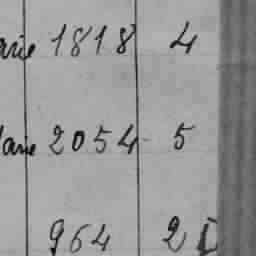 arie 1818 4
arie 2054 5
964 2